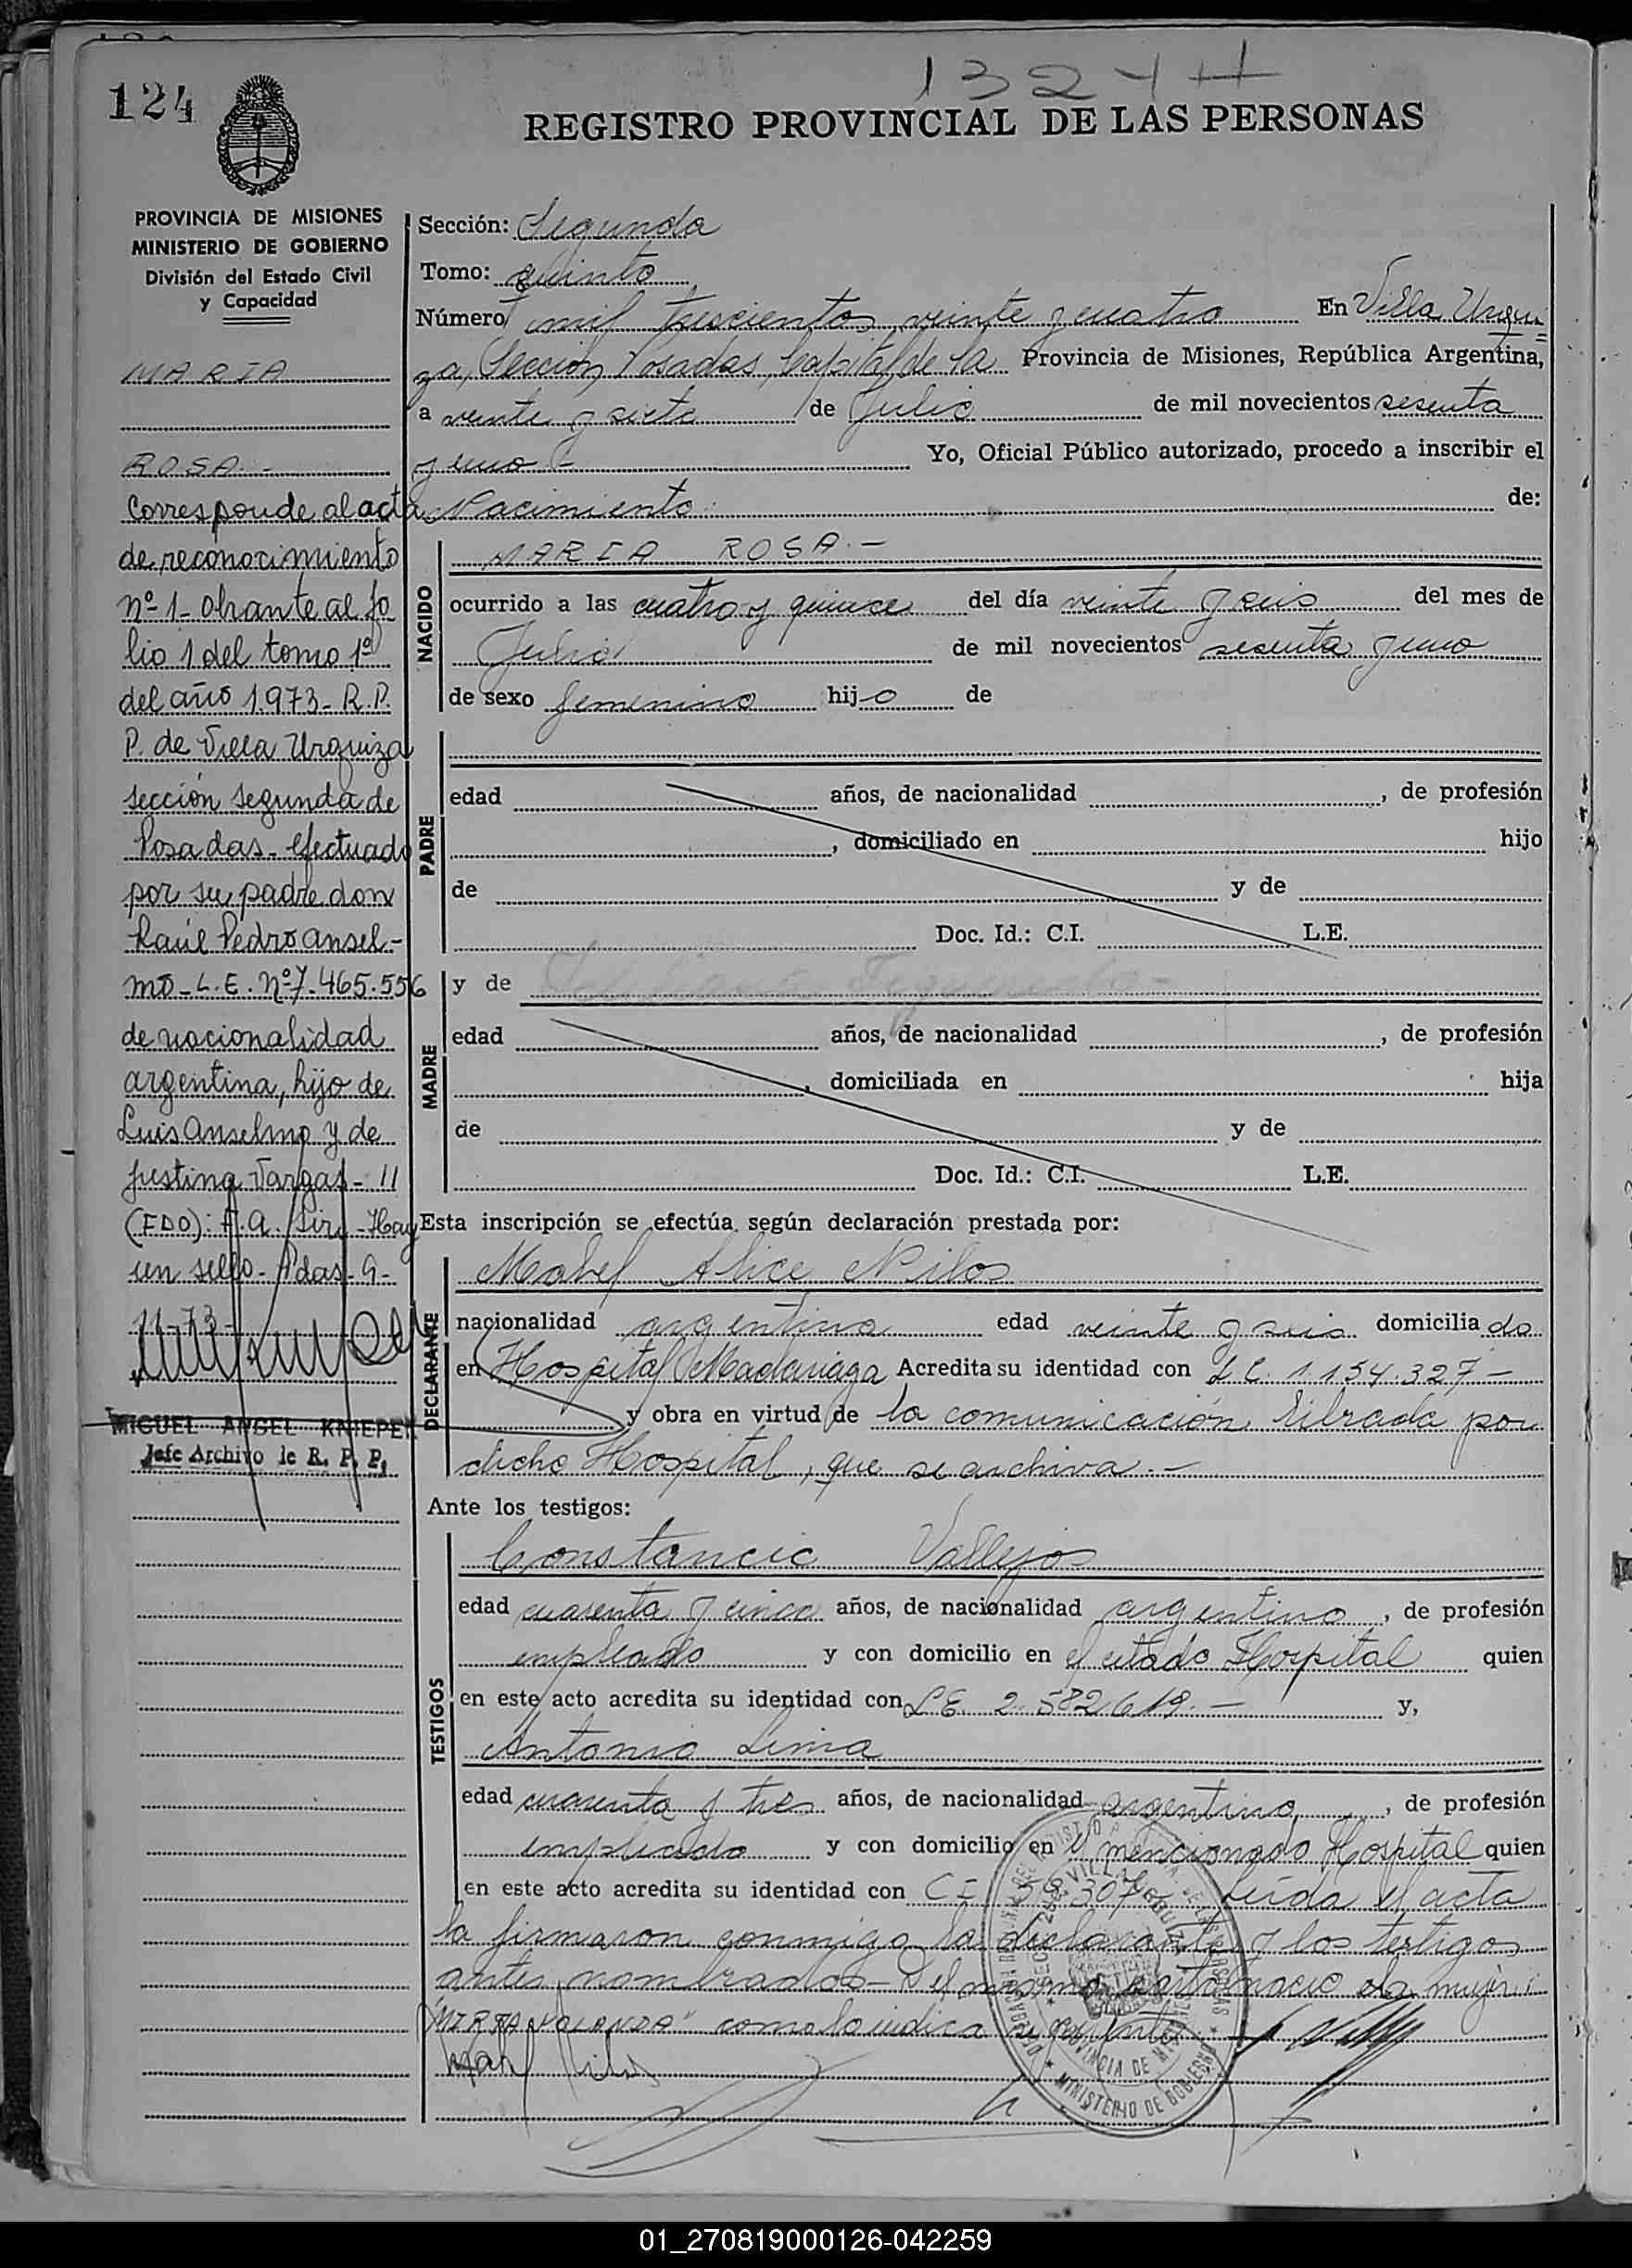 1324 H
124
REGISTRO PROVINCIAL DE LAS PERSONAS
PROVINCIA DE MISIONES
MINISTERIO DE GOBIERNO
División del Estado Civil
y Capacidad
MARIA
ROSA.-
Corresponde al acta
de reconocimiento
nº 1- obrante al fo
lio 1 del tomo 1º
del año 1.973- R.P.
P. de Villa Urquiza
sección segunda de
Posadas- efectuado
por su padre don
Raúl Pedro Ansel-
mo- L.E. Nº 7.465.556
de nacionalidad
argentina, hijo de
Luis Anselmo y de
Justina Vargas- 11
(FDO): A.A. - Hay
un sello- Pdas- 9-
11-73-
MIGUEL ANGEL KNIEPER
Jefe Archivo de R. P. P.
Sección: Segunda
Tomo: Quinto
Número mil trescientos veinte y cuatro En Villa Urqui
za, Sección, Posadas, Capital de la Provincia de Misiones, República Argentina,
a veinte y siete de Julio de mil novecientos sesenta
y uno - Yo, Oficial Público autorizado, procedo a inscribir el
Nacimiento de:
NACIDO
MARIA ROSA.-
ocurrido a las cuatro y quince del día veinte y seis del mes de
Julio de mil novecientos sesenta y uno
de sexo femenino hijo de
PADRE
edad años, de nacionalidad , de profesión
, domiciliado en hijo
de y de
Doc. Id.: C.I. L.E.
MADRE
y de
edad años, de nacionalidad , de profesión
, domiciliada en hija
de y de
Doc. Id.: C.I. L.E.
Esta inscripción se efectúa según declaración prestada por:
DECLARANTE
Mabel Alice Nilos
nacionalidad argentina edad veinte y seis domicilia do
en Hospital Madariaga Acredita su identidad con L.C. 1.154.327-
y obra en virtud de la comunicación librada por
dicho Hospital, que se archiva.-
Ante los testigos:
TESTIGOS
Constancio Vallejos
edad cuarenta y cinco años, de nacionalidad argentino, de profesión
empleado y con domicilio en el citado Hospital quien
en este acto acredita su identidad con L.E. 2.582.619.- y,
Antonio Lima
edad cuarenta y tres años, de nacionalidad argentino, de profesión
empleado y con domicilio en el mencionado Hospital quien
en este acto acredita su identidad con C.I. Leída el acta
la firmaron conmigo la declarante y los testigos
antes nombrados- del mismo nació otra mujer
como lo indica
Mabel Nilos
PROVINCIA DE MISIONES
★ MINISTERIO DE GOBIERNO ★
01_270819000126-042259